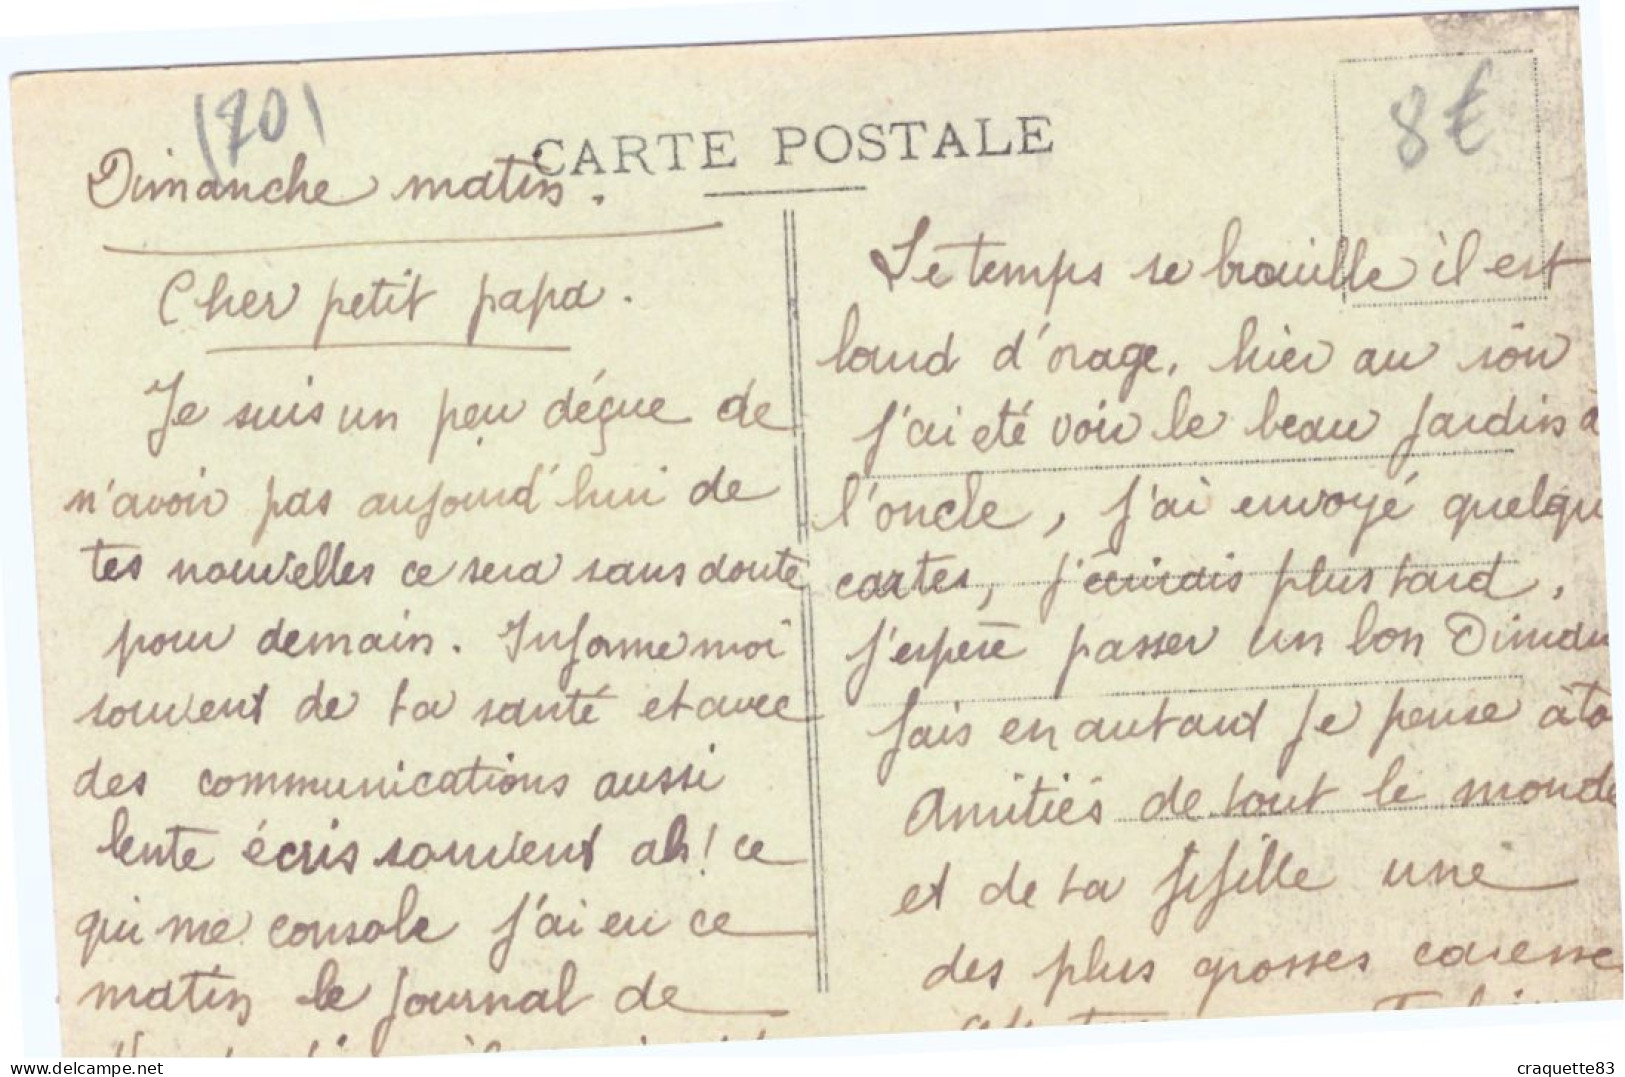 (20)
CARTE POSTALE
8€
Dimanche matin.
Cher petit papa.
Je suis un peu déçue de
n'avoir pas aujourd'hui de
tes nouvelles ce sera sans doute
pour demain. Informe moi
souvent de ta santé et avec
des communications aussi
lente écris souvent ah! ce
qui me console j'ai eu ce
matin le journal de
Le temps se brouille il est
lourd d'orage, hier au soir
j'ai eté voir le beau jardin a
l'oncle, j'ai envoyé quelqu
cartes, j'écrirais plus tard,
j'espere passer un bon Dimanc
fais en autant je pense à to
Amitiés de tout le monde
et de ta fifille une
des plus grosses caresse
craquette83